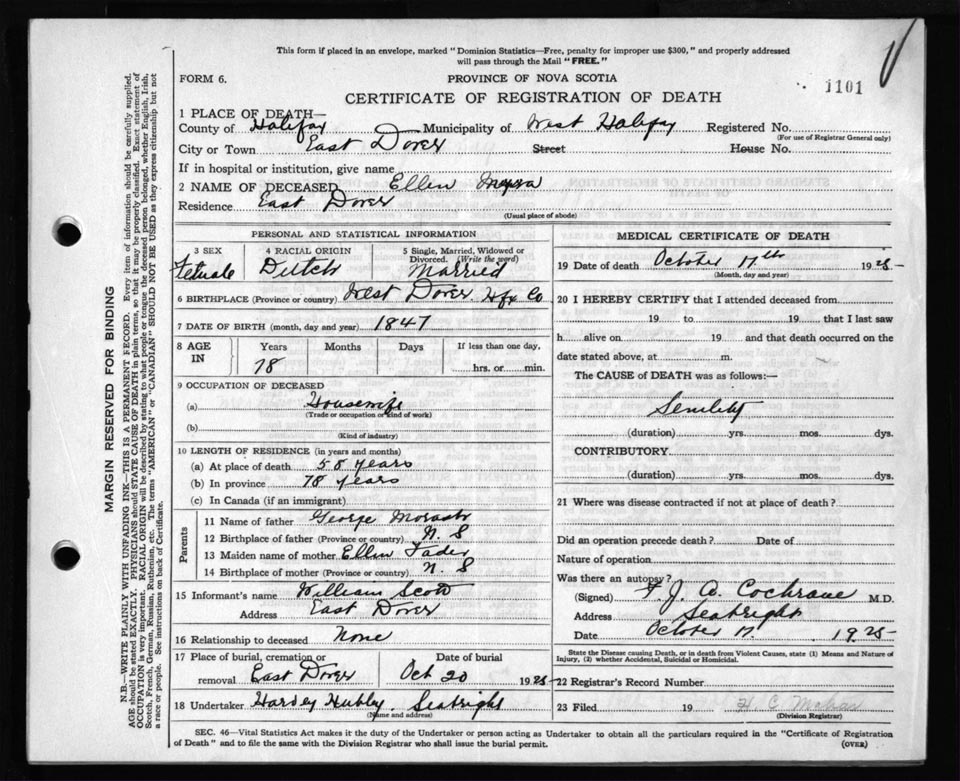 This form if placed in an envelope, marked "Dominion Statistics—Free, penalty for improper use $300," and properly addressed
will pass through the Mail "FREE."
FORM 6.
PROVINCE OF NOVA SCOTIA
1101
CERTIFICATE OF REGISTRATION OF DEATH
1 PLACE OF DEATH—
County of Halifax Municipality of West Halifax Registered No.
(For use of Registrar General only)
City or Town East Dover Street House No.
If in hospital or institution, give name
2 NAME OF DECEASED Ellen
Residence East Dover
(Usual place of abode)
PERSONAL AND STATISTICAL INFORMATION
3 SEX Female
4 RACIAL ORIGIN Dutch
5 Single, Married, Widowed or Divorced. (Write the word) Married
6 BIRTHPLACE (Province or country) West Dover. Hfx Co
7 DATE OF BIRTH (month, day and year) 1847
8 AGE IN Years Months Days If less than one day,
78 hrs. or min.
9 OCCUPATION OF DECEASED
(a) Housewife
(Trade or occupation or kind of work)
(b)
(Kind of industry)
10 LENGTH OF RESIDENCE (in years and months)
(a) At place of death 58 years
(b) In province 78 years
(c) In Canada (if an immigrant)
Parents
11 Name of father George
12 Birthplace of father (Province or country) N. S
13 Maiden name of mother Ellen Fader
14 Birthplace of mother (Province or country) N. S
15 Informant's name William Scott
Address East Dover
16 Relationship to deceased None
17 Place of burial, cremation or removal East Dover
Date of burial Oct 20 1925
18 Undertaker Harvey Hubley. Seabright
(Name and address)
MEDICAL CERTIFICATE OF DEATH
19 Date of death October 17th 1925
(Month, day and year)
20 I HEREBY CERTIFY that I attended deceased from
19 to 19 that I last saw
h alive on 19 and that death occurred on the
date stated above, at m.
The CAUSE of DEATH was as follows:—
Senility
(duration) yrs. mos. dys.
CONTRIBUTORY
(duration) yrs. mos. dys.
21 Where was disease contracted if not at place of death?
Did an operation precede death? Date of
Nature of operation
Was there an autopsy?
(Signed) J. A. Cochrane M.D.
Address Seabright
Date October 17. 1925
State the Disease causing Death, or in death from Violent Causes, state (1) Means and Nature of
Injury, (2) whether Accidental, Suicidal or Homicidal.
22 Registrar's Record Number
23 Filed 19 H C
(Division Registrar)
SEC. 46—Vital Statistics Act makes it the duty of the Undertaker or person acting as Undertaker to obtain all the particulars required in the "Certificate of Registration
of Death" and to file the same with the Division Registrar who shall issue the burial permit.
(OVER)
MARGIN RESERVED FOR BINDING
N.B.—WRITE PLAINLY WITH UNFADING INK—THIS IS A PERMANENT RECORD. Every item of information should be carefully supplied.
AGE should be stated EXACTLY. PHYSICIANS should STATE CAUSE OF DEATH in plain terms, so that it may be properly classified. Exact statement of
OCCUPATION is very important. RACIAL ORIGIN will be described by stating to what people or tongue the deceased person belonged, whether English, Irish,
Scotch, French, German, Russian, Ruthenian, etc. The terms "AMERICAN" or "CANADIAN" SHOULD NOT BE USED as they express citizenship but not
a race or people. See instructions on back of Certificate.